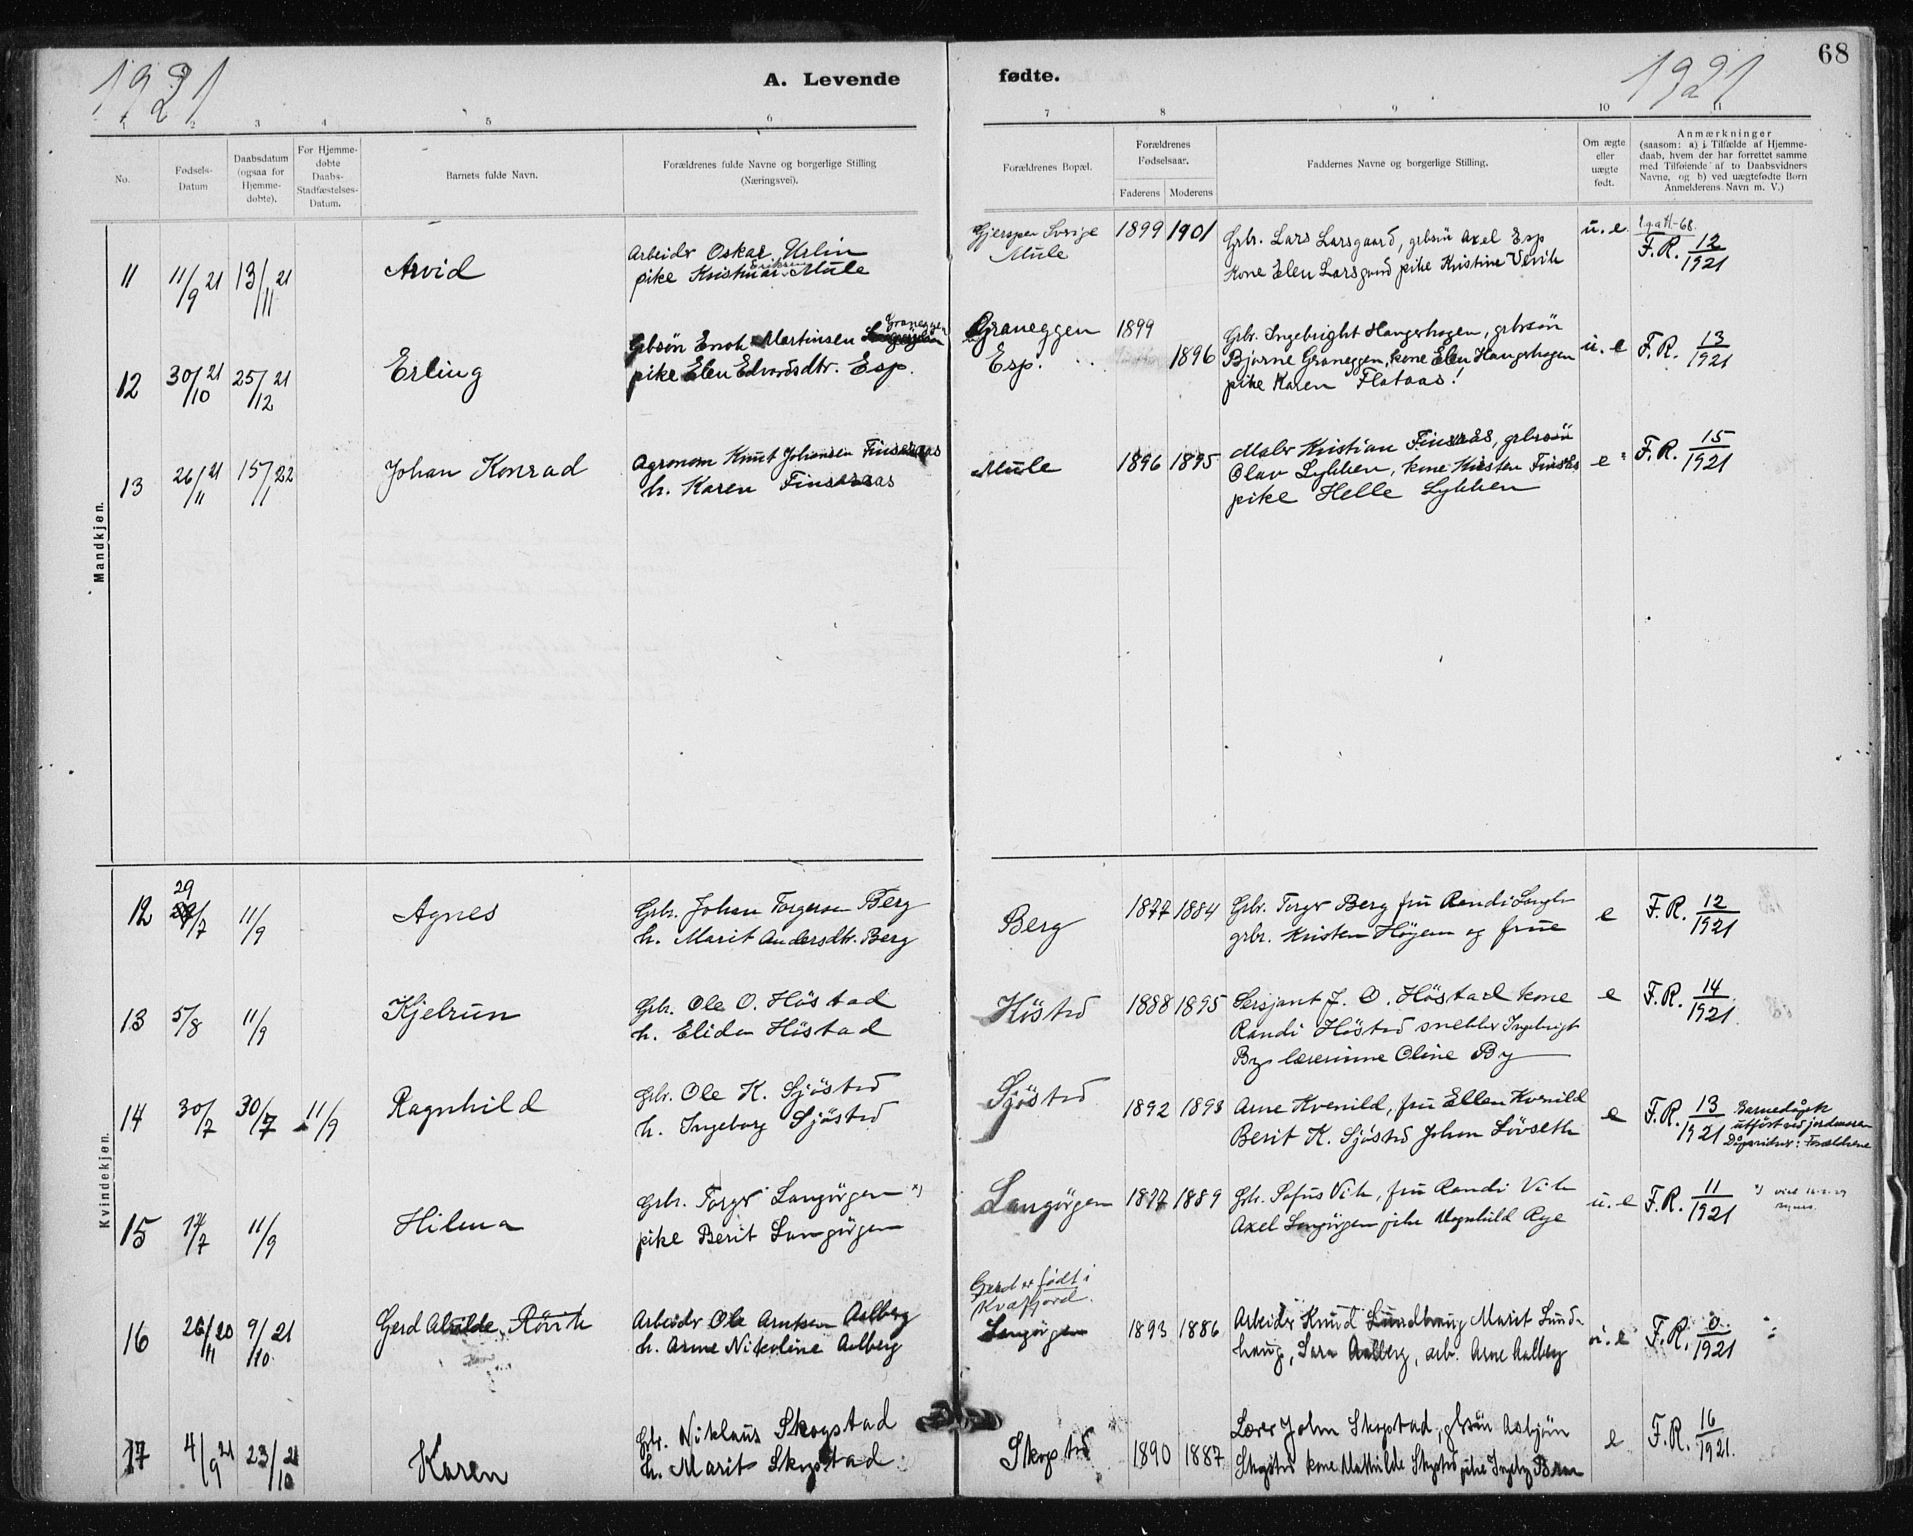 68
1921
A. Levende
fødte.
1921
1 2 3 4 5 6 7 8 9 10 11
No.
Fødsels-
Datum
Daabsdatum
(ogsaa for
Hjemme-
døbte).
For Hjemme-
døbte
Daabs-
Stadfæstelses-
Datum.
Barnets fulde Navn.
Forældrenes fulde Navne og borgerlige Stilling
(Næringsvei).
Forældrenes Bopæl.
Forældrenes
Fødselsaar.
Faderens Moderens
Faddernes Navne og borgerlige Stilling.
Om ægte
eller
uægte
født.
Anmærkninger
(saasom: a) i Tilfælde af Hjemme-
daab, hvem der har forrettet samme
med Tilføiende af to Daabsvidners
Navne, og b) ved uægtefødte Børn
Anmelderens Navn m. V.)
Mandkjøn.
11 11/9 21 13/11 21 Arvid
Arbeider Oskar
pike Mule
Sverige
Mule
1899 1901
Grbr. Lars Larsgaard, grbsøn Axel Esp
Kone Elen Larsgaard pike Kristine
u. e.
F. R. 12/1921
12 30/10 21 25/12 21 Erling
Grbsøn Enok Martinsen Graneggen
pike Elen Edvardsdtr. Esp.
Graneggen
Esp.
1899
1896
Grbr. Ingebright Hangerhagen, grbrsøn
Bjarne Graneggen, kone Elen Hangerhagen
pike Karen Flataas!
u. e F. R. 13/1921
13 26/11 21 15/1 22 Johan Konrad
Agronom Knut Johansen Finsaraas
h. Karen Finsaraas
Mule
1896 1895
Maler Kristian Finsraas, grbrsön
Olav Lykken, kone Kirsten
pike Helle Lykken
e F. R. 15/1921
Kvindekjøn.
12 29/7 11/9 Agnes
Grbr. Johan Torgersen Berg
h. Marit Andersdtr. Berg
Berg
1877 1884
Grbr. Torger Berg fru Randi
grbr. Kristen Höyem og frue
e F. R. 12/1921
13 5/8 11/9 Kjelrun
Grbr. Ole O. Höstad
h. Eliden Höstad
Höstad
1888 1895
Sersjant J. O. Höstad kone
Randi Höstad snekker Ingebrigt
By lærerinne Oline By
e F. R. 14/1921
14 30/7 30/7 11/9 Ragnhild
Grbr. Ole K. Sjöstad
h. Ingeborg Sjöstad
Sjöstad
1892 1893
Arne Kvenild, fru Ellen Kvenild
Berit K. Sjöstad Johan Lövseth
e F. R. 13/1921
Barnedåpen
utfört ved jordmoren
Dåpsvidner: Forældrene
15 17/7 11/9 Hilma
Grbr. Torger Langörgen x)
pike Berit Langörgen
Langörgen
1877 1889
Grbr. Sofus Vik, fru Randi Vik
Axel Langörgen pike Magnhild Rye
u. e F. R. 11/1921
16 26/11 20 9/10 21 Gerd Alvilde Rövik
Arbeider Ole Arntsen Aalberg
h. Anne Nikoline Aalberg
Gerd er födt i
Kvæfjord.
Langörgen
1893 1886
Arbeider Knud Lundhaug Marit Lund-
haug, Sara Aalberg, arb. Arne Aalberg
u. e F. R. 0/1921
17 4/9 21 23/10 21 Karen
Grbr. Niklaus Skogstad
h. Marit Skogstad
Skogstad
1890 1887
Lærer John Skogstad, grbsön Asbjörn
Skogstad kone Mathilde Skogstad pike
e F. R. 16/1921